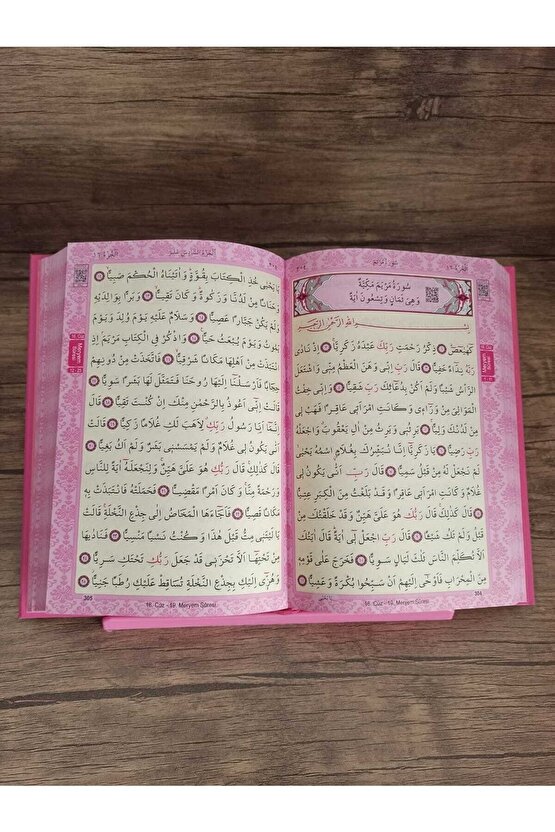 الْجُزْءُ ١٦
سُورَةُ مَرْيَمَ
٣٠٤
سُورَةُ مَرْيَمَ مَكِّيَّةٌ
وَهِيَ ثَمَانٍ وَتِسْعُونَ اٰيَةً
بِسْمِ اللّٰهِ الرَّحْمٰنِ الرَّحِيمِ
كٓهٰيٰعٓصٓ ۝١ ذِكْرُ رَحْمَتِ رَبِّكَ عَبْدَهُ زَكَرِيَّا ۝٢ اِذْ نَادٰى
رَبَّهُ نِدَٓاءً خَفِيًّا ۝٣ قَالَ رَبِّ اِنّ۪ي وَهَنَ الْعَظْمُ مِنّ۪ي وَاشْتَعَلَ
الرَّاْسُ شَيْبًا وَلَمْ اَكُنْ بِدُعَٓائِكَ رَبِّ شَقِيًّا ۝٤ وَاِنّ۪ي خِفْتُ
الْمَوَالِيَ مِنْ وَرَٓاء۪ي وَكَانَتِ امْرَاَت۪ي عَاقِرًا فَهَبْ ل۪ي
مِنْ لَدُنْكَ وَلِيًّا ۝٥ يَرِثُن۪ي وَيَرِثُ مِنْ اٰلِ يَعْقُوبَ وَاجْعَلْهُ
رَبِّ رَضِيًّا ۝٦ يَا زَكَرِيَّٓا اِنَّا نُبَشِّرُكَ بِغُلَامٍ اسْمُهُ يَحْيٰى
لَمْ نَجْعَلْ لَهُ مِنْ قَبْلُ سَمِيًّا ۝٧ قَالَ رَبِّ اَنّٰى يَكُونُ ل۪ي
غُلَامٌ وَكَانَتِ امْرَاَت۪ي عَاقِرًا وَقَدْ بَلَغْتُ مِنَ الْكِبَرِ عِتِيًّا
۝٨ قَالَ كَذٰلِكَ قَالَ رَبُّكَ هُوَ عَلَيَّ هَيِّنٌ وَقَدْ خَلَقْتُكَ مِنْ
قَبْلُ وَلَمْ تَكُ شَيْـًٔا ۝٩ قَالَ رَبِّ اجْعَلْ ل۪ٓي اٰيَةً قَالَ اٰيَتُكَ
اَلَّا تُكَلِّمَ النَّاسَ ثَلٰثَ لَيَالٍ سَوِيًّا ۝١٠ فَخَرَجَ عَلٰى قَوْمِه۪
مِنَ الْمِحْرَابِ فَاَوْحٰٓى اِلَيْهِمْ اَنْ سَبِّحُوا بُكْرَةً وَعَشِيًّا ۝١١
304
16. Cüz - 19. Meryem Sûresi
16. Cüz
Meryem
Sûresi
الْجُزْءُ السَّادِسَ عَشَرَ
الْجُزْءُ ١٦
يَا يَحْيٰى خُذِ الْكِتَابَ بِقُوَّةٍ وَاٰتَيْنَاهُ الْحُكْمَ صَبِيًّا ۝١٢
وَحَنَانًا مِنْ لَدُنَّا وَزَكٰوةً وَكَانَ تَقِيًّا ۝١٣ وَبَرًّا بِوَالِدَيْهِ
وَلَمْ يَكُنْ جَبَّارًا عَصِيًّا ۝١٤ وَسَلَامٌ عَلَيْهِ يَوْمَ وُلِدَ وَيَوْمَ
يَمُوتُ وَيَوْمَ يُبْعَثُ حَيًّا ۝١٥ وَاذْكُرْ فِي الْكِتَابِ مَرْيَمَ اِذِ
انْتَبَذَتْ مِنْ اَهْلِهَا مَكَانًا شَرْقِيًّا ۝١٦ فَاتَّخَذَتْ مِنْ دُونِهِمْ
حِجَابًا فَاَرْسَلْنَٓا اِلَيْهَا رُوحَنَا فَتَمَثَّلَ لَهَا بَشَرًا سَوِيًّا ۝١٧
قَالَتْ اِنّ۪ٓي اَعُوذُ بِالرَّحْمٰنِ مِنْكَ اِنْ كُنْتَ تَقِيًّا ۝١٨
قَالَ اِنَّمَٓا اَنَا رَسُولُ رَبِّكِ لِاَهَبَ لَكِ غُلَامًا زَكِيًّا ۝١٩ قَالَتْ
اَنّٰى يَكُونُ ل۪ي غُلَامٌ وَلَمْ يَمْسَسْن۪ي بَشَرٌ وَلَمْ اَكُ بَغِيًّا ۝٢٠
قَالَ كَذٰلِكِ قَالَ رَبُّكِ هُوَ عَلَيَّ هَيِّنٌ وَلِنَجْعَلَهُٓ اٰيَةً لِلنَّاسِ
وَرَحْمَةً مِنَّا وَكَانَ اَمْرًا مَقْضِيًّا ۝٢١ فَحَمَلَتْهُ فَانْتَبَذَتْ بِه۪
مَكَانًا قَصِيًّا ۝٢٢ فَاَجَٓاءَهَا الْمَخَاضُ اِلٰى جِذْعِ النَّخْلَةِ قَالَتْ
يَا لَيْتَن۪ي مِتُّ قَبْلَ هٰذَا وَكُنْتُ نَسْيًا مَنْسِيًّا ۝٢٣ فَنَادٰيهَا
مِنْ تَحْتِهَٓا اَلَّا تَحْزَن۪ي قَدْ جَعَلَ رَبُّكِ تَحْتَكِ سَرِيًّا ۝٢٤
وَهُزّ۪ٓي اِلَيْكِ بِجِذْعِ النَّخْلَةِ تُسَاقِطْ عَلَيْكِ رُطَبًا جَنِيًّا ۝٢٥
305
16. Cüz - 19. Meryem Sûresi
16. Cüz
Meryem
Sûresi